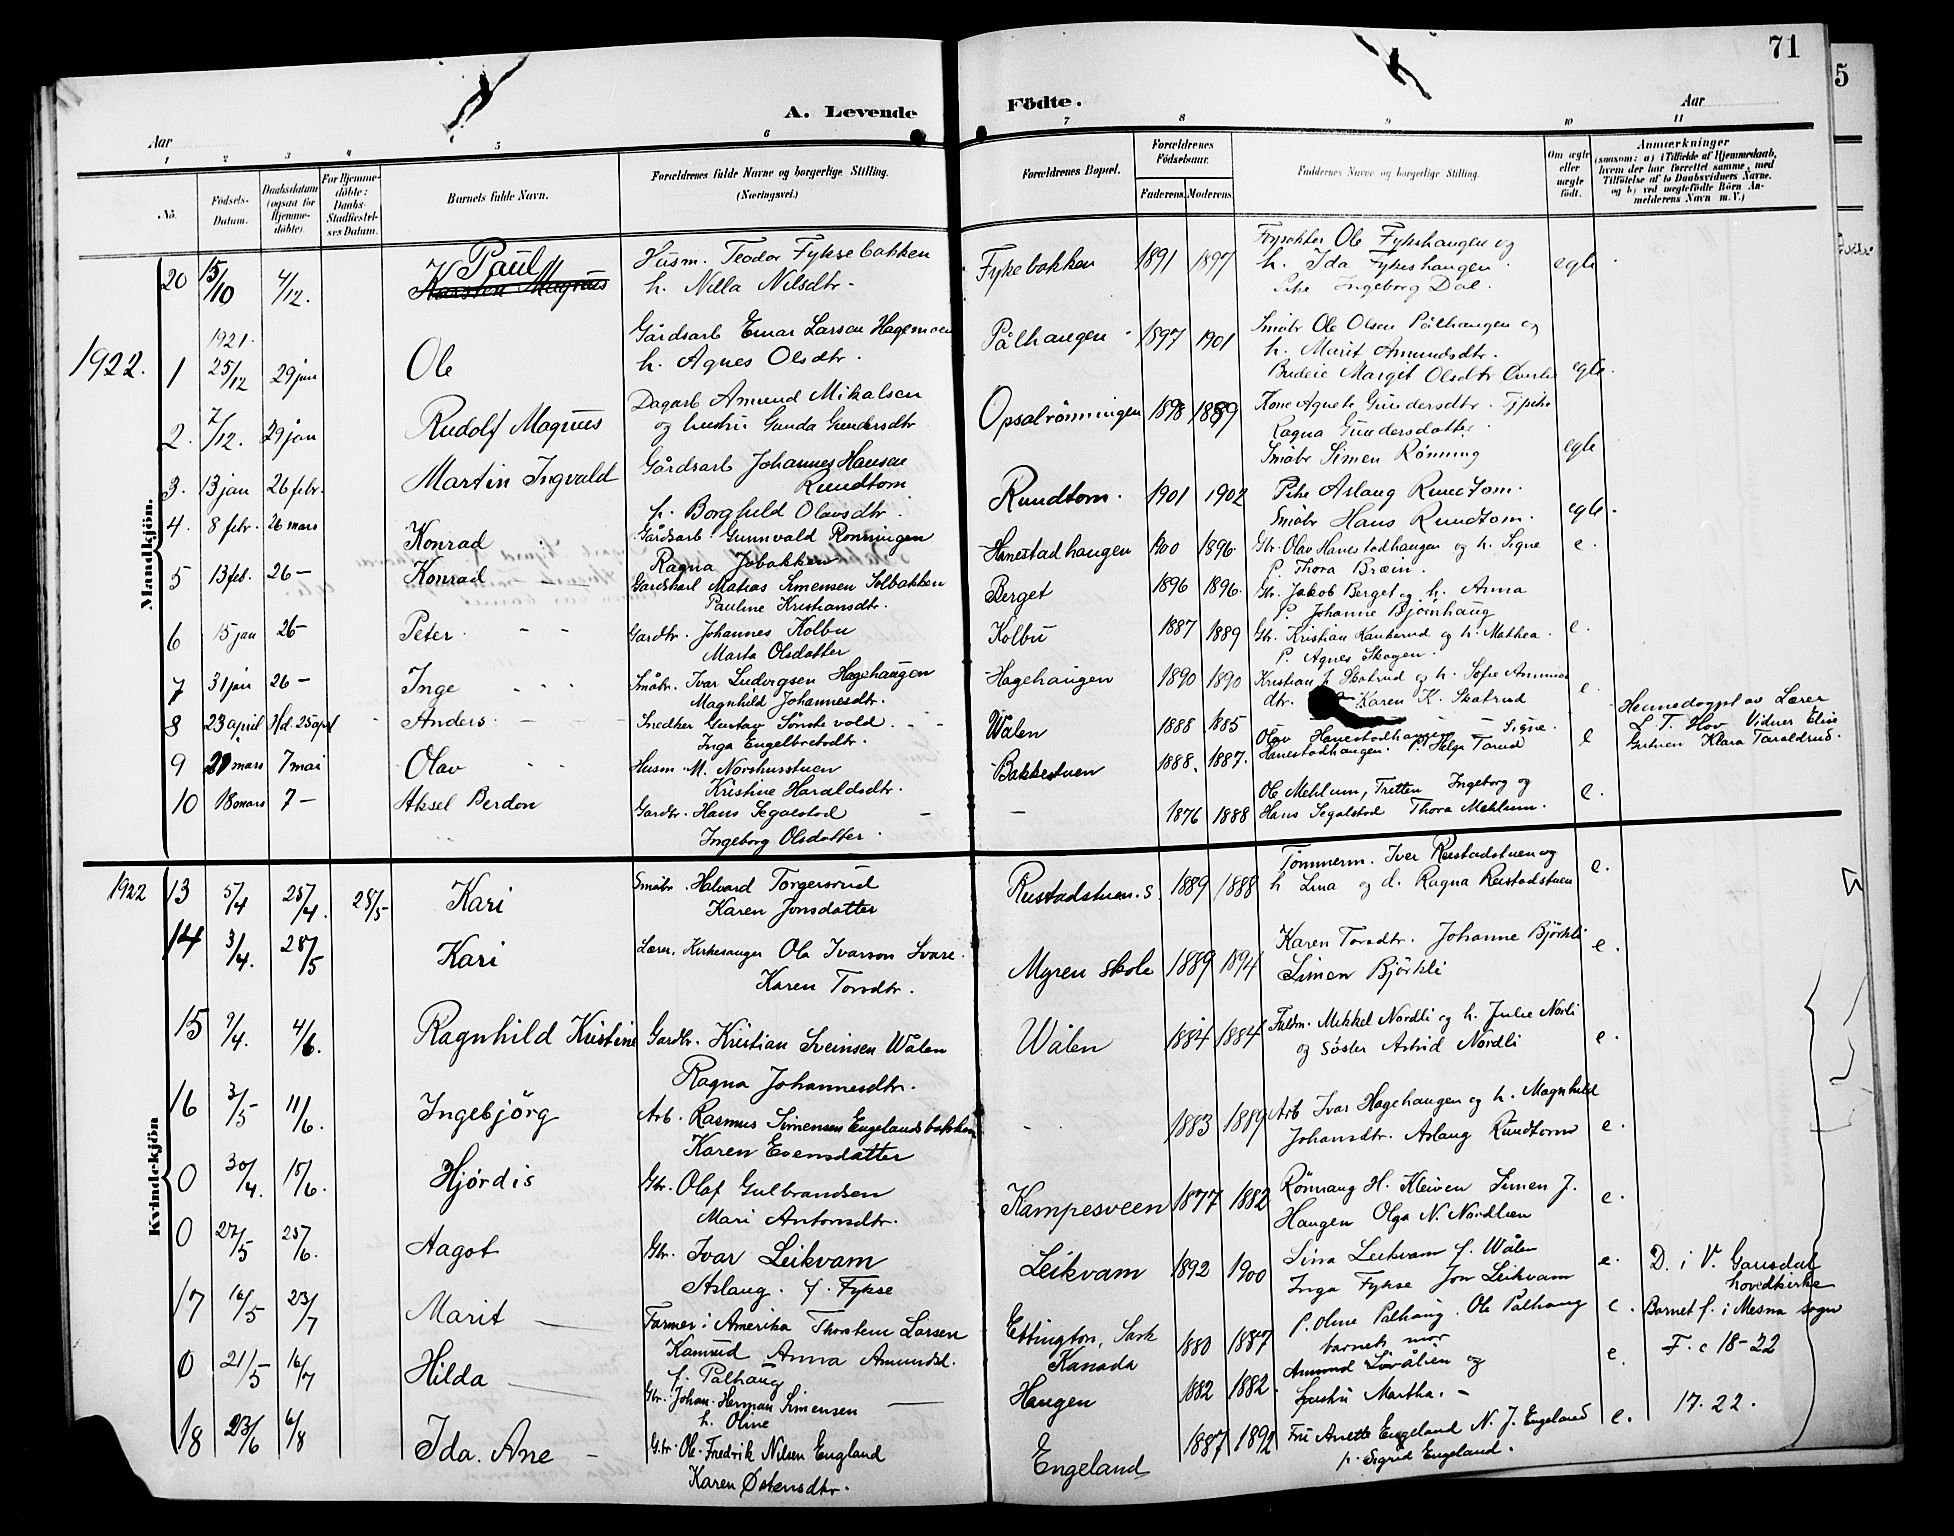 71
5
A. Levende Födte.
Aar Aar
1 2 3 4 5 6 7 8 9 10 11
No. Födsels-Datum. Daabsdatum (ogsaa for Hjemmedöbte). For Hjemmedöbte: Daabs-Stadfæstelses Datum. Barnets fulde Navn. Forældrenes fulde Navne og borgerlige Stilling. (Næringsvei.) Forældrenes Bopæl. Forældrenes Födselsaar. Faderens. Moderens. Faddernes Navne og borgerlige Stilling. Om ægte eller uægte födt. Anmærkninger (saasom: a) i Tilfælde af Hjemmedaab, hvem der har forrettet samme, med Tilföielse af to Daabsvidners Navne, og b) ved uægtefödte Börn Anmelderens Navn m. V.)
Mandkjön.
20 15/10 4/12. Paul Karsten Magnus Husm. Teodor Fyksebakken Fykebakken 1891 1897 Ole Fykeshaugen og egte
h. Nilla Nilsdtr. h. Ida Fykeshaugen.
Pike Ingeborg Dal.
1922. 1 1921. 25/12 29 jan Ole Gårdsarb Einar Larsen Hagemoen Pålhaugen 1897 1901 Småbr Ole Olsen Pålhaugen og egte.
h. Agnes Olsdtr. h. Marit Amundsdtr.
Budeie Margit Olsdtr
2. 7/12. 29 jan Rudolf Magnus Dagarb Amund Mikalsen Opsalrönningen 1898 1889 Kone Agnete Gundersdtr. Tj pike egte
og hustru Gunda Gundersdtr Ragna Gundersdatter.
Småbr Simen Rönning
3. 13 jan 26 febr. Martin Ingvald Gårdsarb Johannes Hansen Rundtom Rundtom. 1901 1902 Pike Aslaug Rundtom. egte.
h. Borghild Olavsdtr. Småbr Hans Rundtom.
4. 8 febr. 26 mars Konrad Gårdsarb. Gunnvald Ronningen Hanestadhaugen 1900 1896 Gbr. Olav Hanestadhaugen og h. Signe e.
Ragna Jobakken P. Thora Bræin.
5 13 feb. 26 - Konrad Gardskarl Matias Simensen Solbakken Berget 1896 1896. Gbr. Jakob Berget og h. Anna
Pauline Kristiansdtr. P. Johanne Bjørnhaug
6 15 jan 26 - Peter. Gardbr. Johannes Kolbu Kolbu 1887 1889 Gbr. Kristian og h. Mathea. e.
Marta Olsdatter P. Agnes Skogen.
7 31 jan 26 - Inge Småbr. Ivar Ludvigsen Hagehaugen Hagehaugen 1890 1890 Kristian J. og h. Sofie e.
Magnhild Johannesdtr. dtr. Karen K. Skatrud
8 23 april Hd. 23 april Anders Snedker Gustav Sönstevold Wålen 1888 1885 Olav Hanestadhaugen Signe Hjemmedøypt av Lærer
Inga Engelbretsdtr. Hanestadhaugen. P. Helga Torud e L. T. Hov Vidner Elise
Klara Taraldsrud.
9 20 mars 7 mai Olav Husm. M. Norshusstuen Bakkestuen 1888. 1887.
Kristine Haraldsdtr.
10 18 mars 7 - Aksel Berdon Gardbr. Hans Segalstad 1876 1888 Ole Mehlum, Tretten Ingeborg og e.
Ingeborg Olsdatter. Hans Segalstad Thora Mehlum.
Kvindekjön
1922 13 5/4 25/4. 28/5 Kari Småbr. Halvard Torgersrud Rustadstuen. s. 1889 1888 Tömmerm. Iver Rustadstuen og e.
Karen Jonsdatter h Lina og d. Ragna Rustadstuen
14 3/4. 28/5 Kari Lærer, Kirkesanger Ola Ivarson Svare. Myren skole 1889 1894 Karen Torsdtr. Johanne Björkli e.
Karen Torsdtr. Simen Björkli
15 9/4. 4/6. Ragnhild Kristine Gardbr. Kristian Sveinsen Wålen Wålen 1884 1884 Mikkel Nordli og h. Julie Norli e.
Ragna Johannesdtr. og søster Astrid Nordli
16 3/5 11/6. Ingebjörg Arb. Rasmus Simensen Engelandsbakken 1883 1889 Arb Ivar Hagehaugen og h. Magnhild e.
Karen Evensdatter Johansdtr. Aslaug Rundtom
0 30/4. 15/6. Hjördis Gbr. Olaf Gulbrandsen Kampesveen 1877 1882 Rönnaug H. Kleiven Simen J. e.
Mari Antonsdtr. Haugen Olga N. Nordlien
0 27/5 25/6. Aagot Gbr. Ivar Leikvam Leikvam 1892 1900 Lina Leikvam f. Wålen e. D. i V. Gausdal
Aslaug. f. Fykse Inga Fykse Jon Leikvam hovedkirke
17 16/5 23/7 Marit Farmer i Amerika Thorstein Larsen Ettington, Sask 1880 1887 P. Oline Palhaug. Ole Palhaug e. Barnet f. i Mesna sogn
Kamrud Anna Amundsd. Kanada barnets mor F. c 18-22
f. Palhaug
0 21/5 16/7 Hilda Gbr. Johan Herman Simensen Haugen 1882 1882. Amund og e.
h. Oline hustru Martha. 17. 22.
18 23/6 6/8 Ida. Ane Gbr. Ole Fredrik Nilsen England Engeland 1887 1892 Fru Anette Engeland N. J. Engeland e.
Karen Østensdtr. p. Sigrid Engeland.